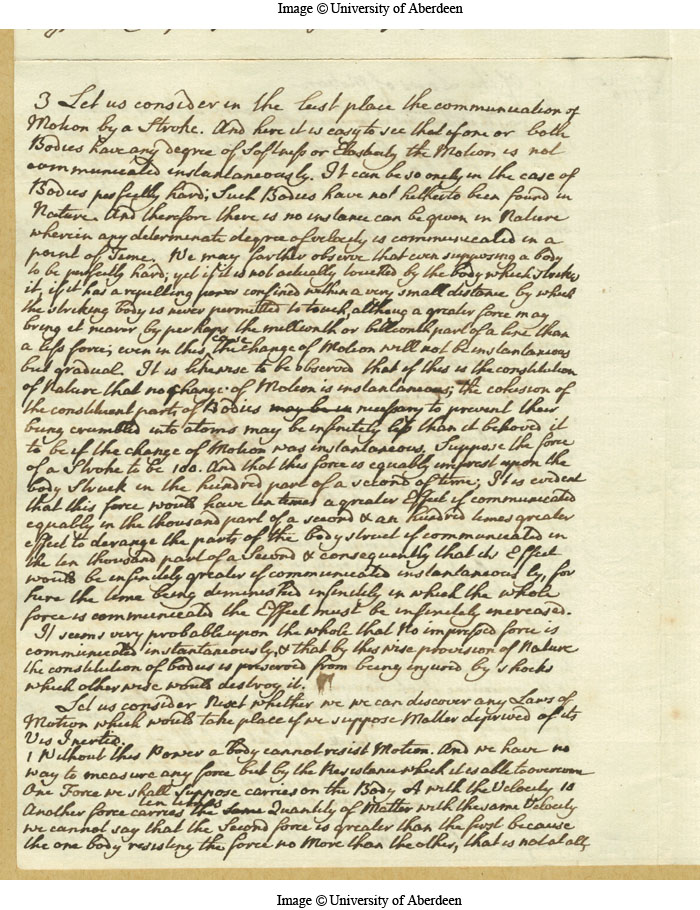 Image © University of Aberdeen
3 Let us consider in the last place the communication of
Motion by a Stroke. And here it is easy to see that if one or both
Bodies have any degree of Softness or Elasticity the Motion is not
communicated instantaneously. It can be so onely in the case of
Bodies perfectly hard; Such Bodies have not hitherto been found in
Nature. And therefore there is no instance can be given in Nature
wherein any determinate degree of velocity is communicated in a
point of Time. We may farther observe that even supposing a body
to be perfectly hard; yet if it is not actually touched by the body which strikes
it, if it has a repelling power confined within a very small distance by which
the striking body is never permitted to touch, althoug a greater force may
bring it nearer by perhaps the millionth or billionth part of a line than
a less force; even in this case the change of Motion will not be instantaneous
but gradual. It is likewise to be observed that if this is the constitution
of Nature that no change of Motion is instantaneous; the cohesion of
the constituent parts of Bodies may be in necessary to prevent their
being crumbled into atoms may be infinitely less than it behoved it
to be if the change of Motion was instantaneous. Suppose the force
of a Stroke to be 100. And that this force is equally imprest upon the
body Struck in the hundred part of a second of time; It is evident
that this force would have ten times a greater Effect if communicated
equally in the thousand part of a second & an hundred times greater
effect to derange the parts of the body struck if communicated in
the ten thousand part of a Second & consequently that its Effect
would be infinitely greater if communicated instantaneously, for
here the time being diminished infinitely in which the whole
force is communicated the Effect must be infinitely increased.
It seems very probable upon the whole that No impressed force is
communicated instantaneously, & that by this wise provision of Nature
the constitution of bodies is preserved from being injured by shocks
which otherwise would destroy it.
Let us consider Next whether we we can discover any Laws of
Motion which would take place if we suppose Matter deprived of its
Vis Inertiæ.
1 Without this Power a body cannot resist Motion. And we have no
way to measure any force but by the Resistance which it is able to overcome
One Force we shall Suppose carries on the Body A with the Velocity 10
Another force carries ten times the same Quantity of Matter with the same Velocity
we cannot say that the Second force is greater than the first because
the one body resisting the force no More than the other, that is not at all,
Image © University of Aberdeen